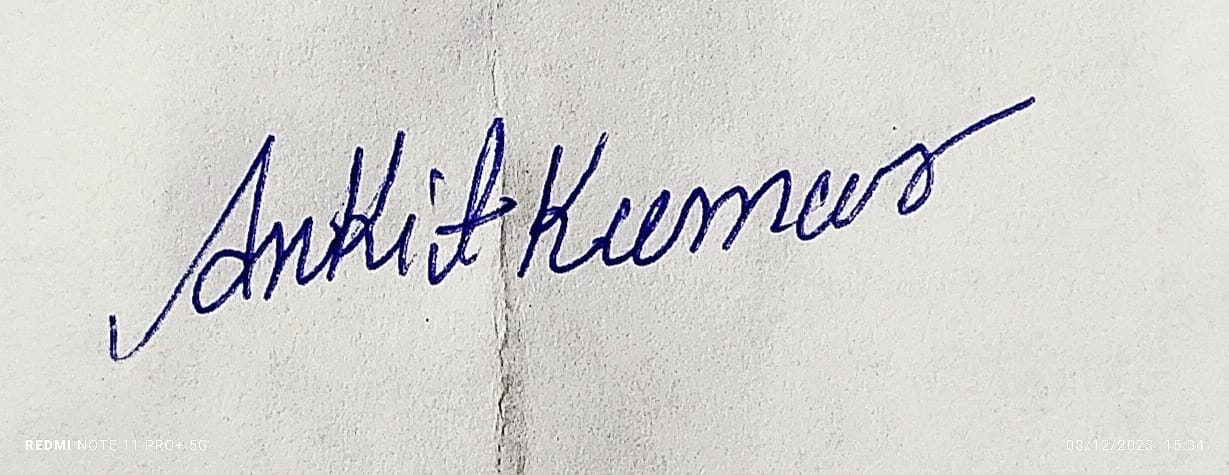 Ankit Kumar
REDMI NOTE 11 PRO+ 5G
08/12/2023 15:34